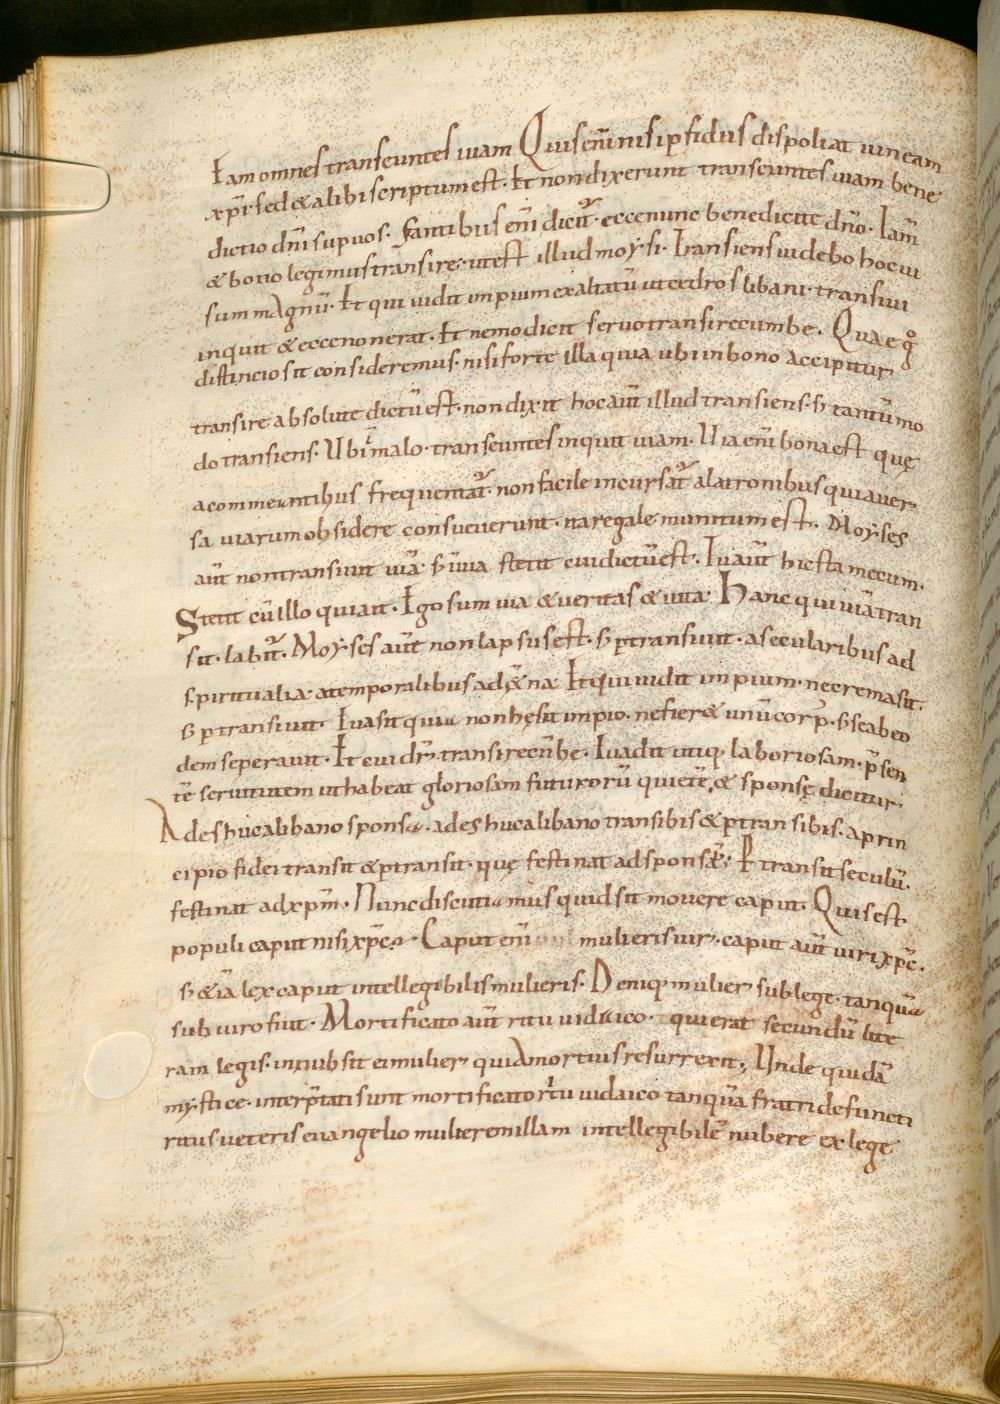 Eam omnes transeuntes uiam Quis eni̅ nisi p̱fidus dispoliat uineam
xp̅i. sed & alibi scriptum est. Et non dixerunt transeuntes uiam bene
dictio dn̅i sup uos. Stantibus eni̅ dicit̅. ecce nunc benedicite dn̅o. Ia̅
& bono legimus transire. ut est illud moysi. Transiens uidebo hoc ui
sum magnu̅. Et qui uidit impium exaltatu̅ ut cedros libani. transiui
inquit & ecce non erat. Et nemo dicit seruo transi recumbe. Quae g̊
distincio sit consideremus. nisi forte illa quia ubi in bono accipitur
transire absolute dictu̅ est. non dixit hoc aut̅ illud transiens. s; tantu̅mo
do transiens. Ubi i̅ malo. transeuntes inquit uiam. Uia eni̅ bona est quę
a commeantibus frequentat̅. non facile incursat̅ a latronibus qui auer
sa uiarum obsidere consueuerunt. na regale munitum est. Moyses
aut̅ non transiuit uia̅. s; i̅ uia stetit cui dictu̅ est. Tu aut̅ hic sta mecum.
Stetit cu̅ illo qui ait. Ego sum uia & ueritas & uita. Hanc qui uia̅ tran
sit. labit̅. Moyses aut̅ non lapsus est. s; p̱transiuit. a secularibus ad
spiritualia. a temporalibus ad &̅na. Et qui uidit impium. nec remasit.
s; p̱transiuit. Euasit quia non hęsit impio. ne fier& unu̅ corp̅. s; scabeo
dem seperauit. Et cui dr̅. transi recu̅be. Euadit utiq; laboriosam. p̅sen
te̅ seruitutem ut habeat gloriosam futuroru̅ quiete̅. & sponsę dicitur
Ades huc a libano sponsa. ades huc a libano transibis & p̱transibis. a prin
cipio fidei transit & p̱transit. quę festinat ad sponsa̅. P̱transit seculu̅.
festinat ad xp̅m. Nunc discutiamus quid sit mouere caput. Quis est
populi caput nisi xp̅c. Caput eni̅ mulieris uir. caput aut̅ uiri xp̅c.
s; &ia̅ lex caput intellegibilis mulieris. Deniq; mulier sub lege. tanqua̅
sub uiro fiut. Mortificato aut̅ ritu iudaico. qui erat secundu̅ litte
ram legis. in nubsit ei mulier qui a mortuis resurrexit. Unde quida̅
mystice. interp̅tati sunt mortificato ritu iudaico tanqua̅ fratri defuncti
ritus ueteris euangelio mulierem illam intellegibile̅ nubere ex lege